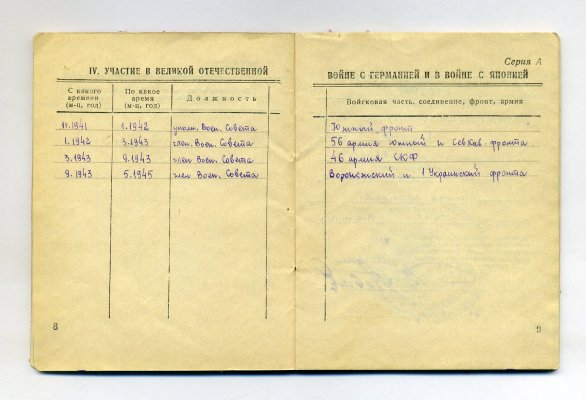 IV. УЧАСТИЕ В ВЕЛИКОЙ ОТЕЧЕСТВЕННОЙ
С какого времени (м-ц, год)
По какое время (м-ц, год)
Должность
11.1941 1.1942 уполн. Воен. Совета
1.1942 3.1943 член Воен. Совета
3.1943 9.1943 член Воен. Совета
9.1943 5.1945 член Воен. Совета
8
Серия А
ВОЙНЕ С ГЕРМАНИЕЙ И В ВОЙНЕ С ЯПОНИЕЙ
Войсковая часть, соединение, фронт, армия
Южный фронт
56 армия Южный и Сев Кав. фронта
46 армия СКФ
Воронежский и 1 Украинский фронта
9